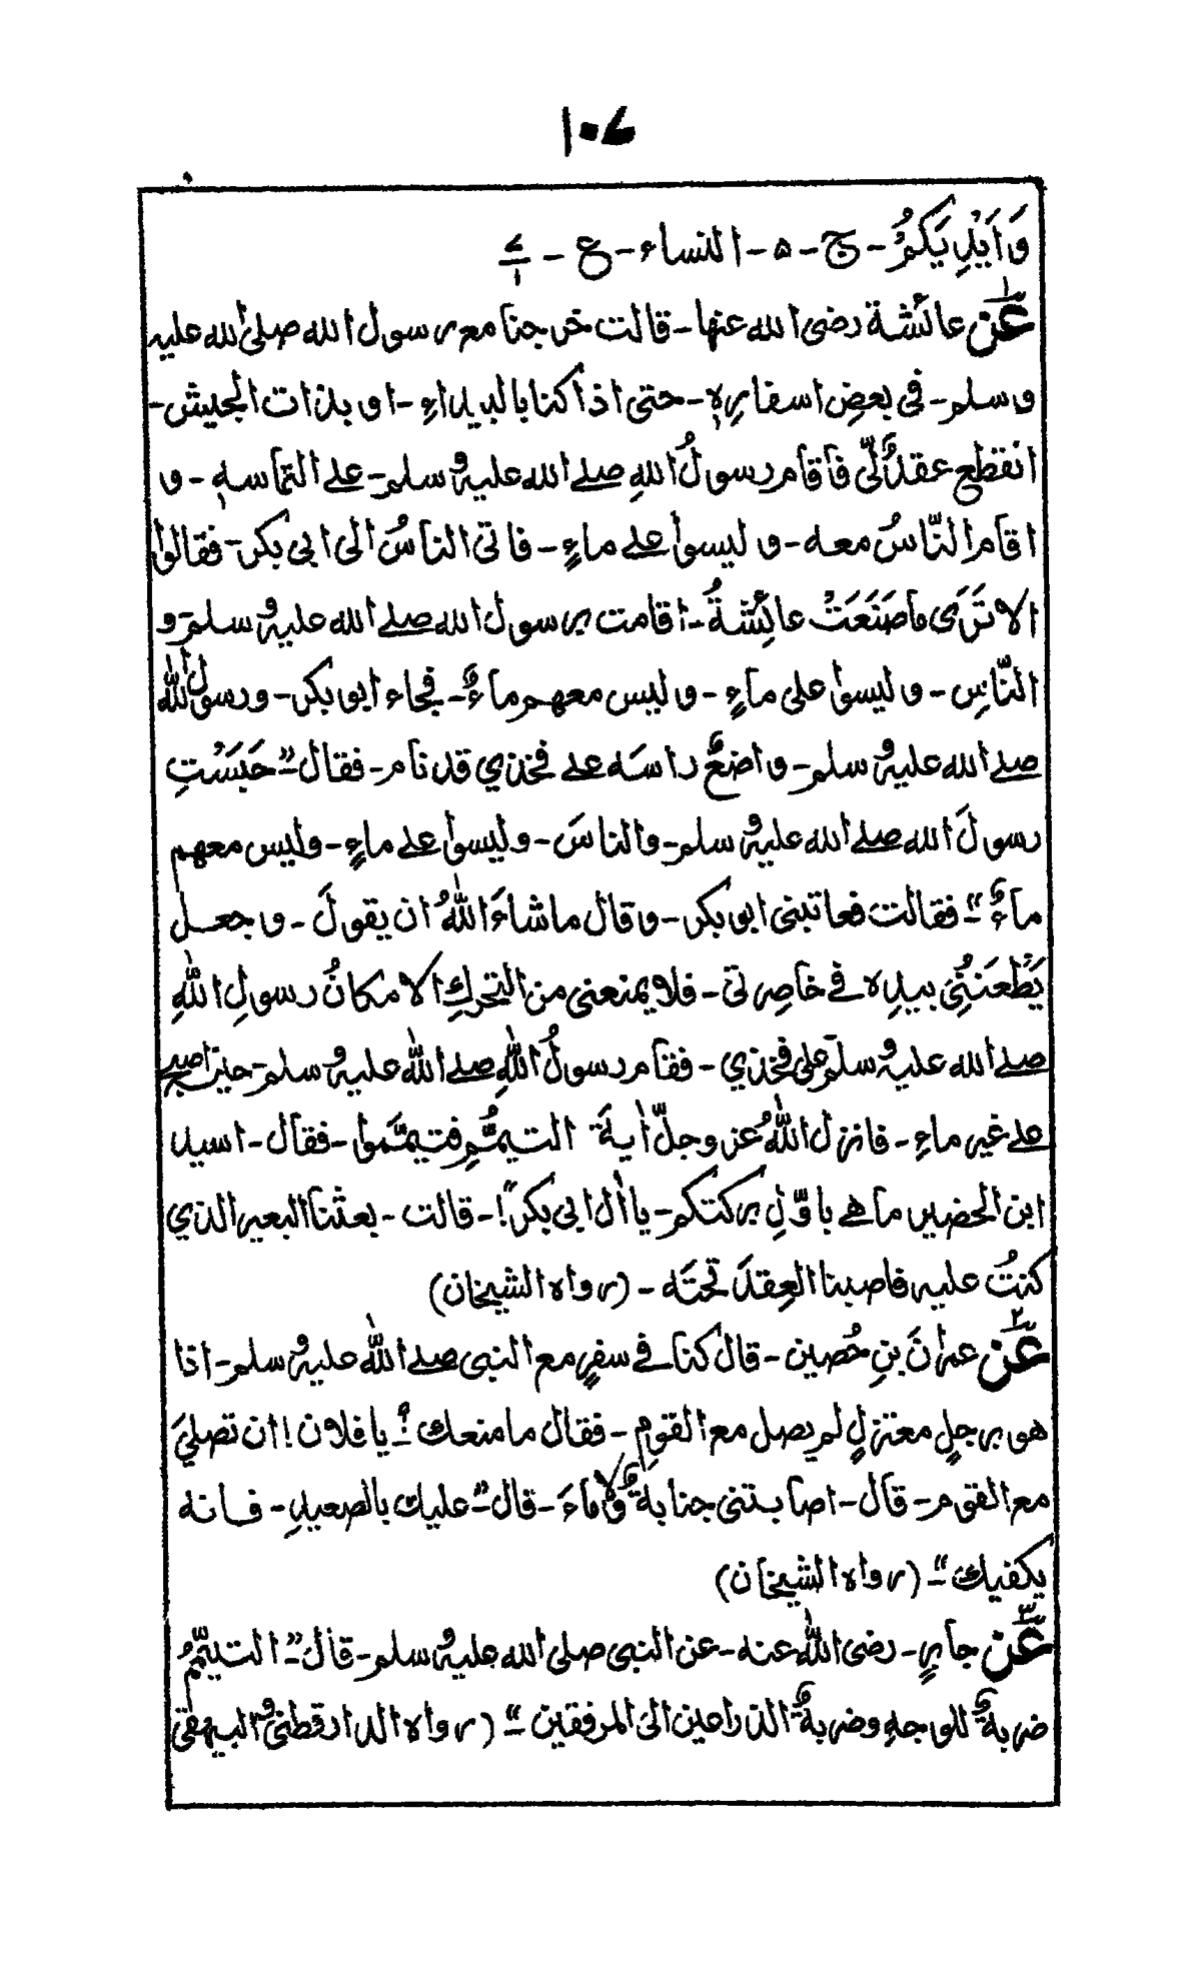 ۱۰۷
وَاَيْدِيَكُمْ - ج - ۵ - النساء - ع - ۷/۱
۱ عَن عائشة رضى الله عنها - قالت خرجنا مع رسول الله صلى الله عليه
وسلم - فى بعضِ اسفارِهٖ - حتى اذا كنا بالبيداءِ - او بذات الجيش -
انقطع عقدٌ لّى فاقام رسولُ اللهِ صلے الله عليه وسلم - علے التماسهٖ - و
اقام النّاسُ معه - و ليسوا علے ماءٍ - فاتى الناسُ الى ابى بكر - فقالوا
الا تَرَى ما صَنَعَتْ عائِشةُ - اقامت برسول الله صلے الله عليه وسلم - و
النّاسِ - و ليسوا على ماءٍ - و ليس معهم ماءٌ - فجاء ابو بكر - و رسولُ الله
صلے الله عليه وسلم - واضعٌ راسَه علے فخذي قد نام - فقال "حَبَسْتِ
رسولَ الله صلے الله عليه وسلم - والناسَ - وليسوا علے ماءٍ - وليس معهم
ماءٌ" - فقالت فعاتبنى ابو بكر - وقال ما شاءَ اللهُ ان يقولَ - وجعل
يَطْعَنُنِىْ بيدِه فے خاصِرتى - فلا يمنعنى من التحركِ الا مكانُ رسولِ اللهِ
صلے الله عليه وسلم على فخذي - فقام رسولُ اللهِ صلے الله عليه وسلم - حين اصبح
علے غير ماءٍ - فانزل اللهُ عز وجلّ اٰيةَ التيمُّمِ فتيمَّموا - فقال - اسيد
ابن الحضير ما هے باوّلِ بركتكم - يا اٰل ابى بكر"! - قالت - بعثنا البعير الذي
كنتُ عليه فاصبنا العِقدَ تحتَه - (رواه الشيخان)
۲ عَن عمرانَ بنِ حُصين - قال كنا فے سفرٍ مع النبى صلے الله عليه وسلم - اذا
هو برجلٍ معتزلٍ لم يصل مع القومِ - فقال ما منعك؟ يا فلان! ان تصلىَ
مع القوم - قال - اصابتنى جنابةٌ ولا ماءَ - قال "عليك بالصعيدِ - فانه
يكفيك" - (رواه الشيخان)
۳ عَن جابرٍ - رضى الله عنه - عن النبى صلى الله عليه وسلم - قال "التيمّمُ
ضربةٌ للوجهِ وضربةٌ الذراعين الى المرفقين" - (رواه الدارقطنى والبيهقى